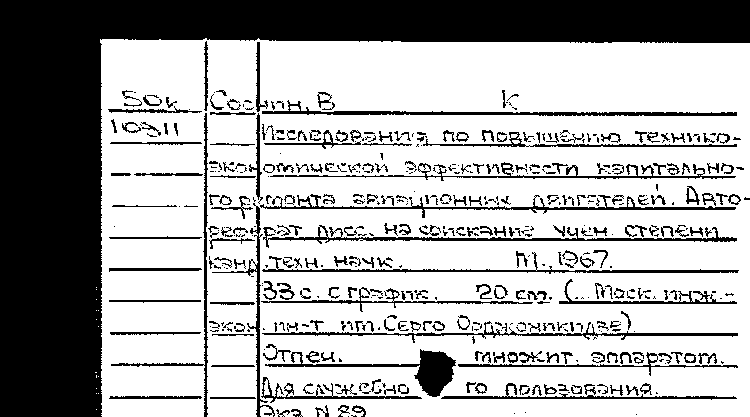 50к Соснин, В К
10911 Исследования по повышению технико-
экономической эффективности капитально-
го ремонта авиационных двигателей. Авто-
реферат дисс. на соискание учен. степени
канд. техн. наук. М., 1967.
33 с. с график. 20 см. (... Моск. инж.-
экон. ин-т им. Серго Орджоникидзе)
Отпеч. множит. аппаратом.
Для служебно го пользования.
Экз. N 89